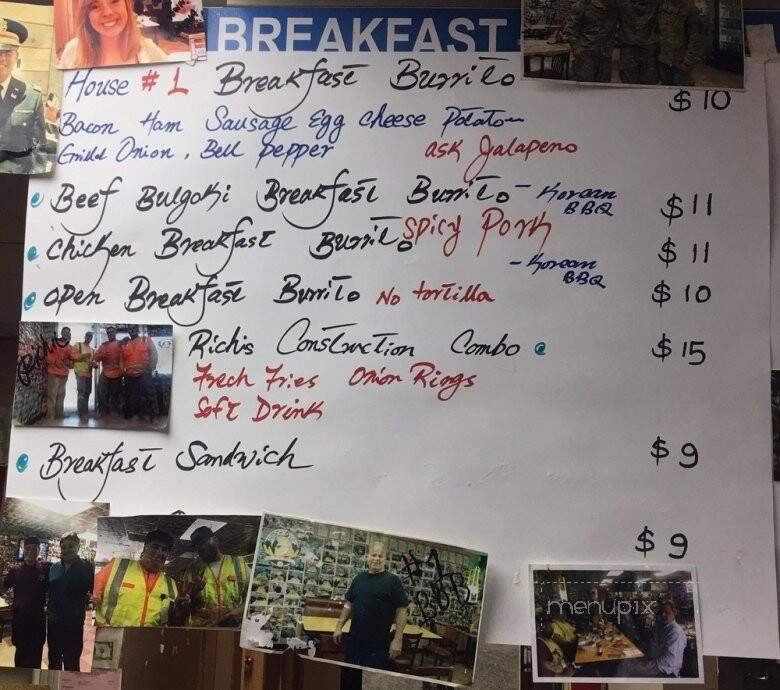 BREAKFAST
House #1 Breakfast Burrito $10
Bacon Ham Sausage Egg Cheese Potato
Grilld Onion, Bell pepper ask Jalapeno
Beef Bulgoki Breakfast Burrito - Korean BBQ $11
Spicy Pork
Chicken Breakfast Burrito - Korean BBQ $11
Open Breakfast Burrito No tortilla $10
Rich's Construction Combo $15
Frech Fries Onion Rings
Soft Drink
Breakfast Sandwich $9
$9
Rich
#1
menupix